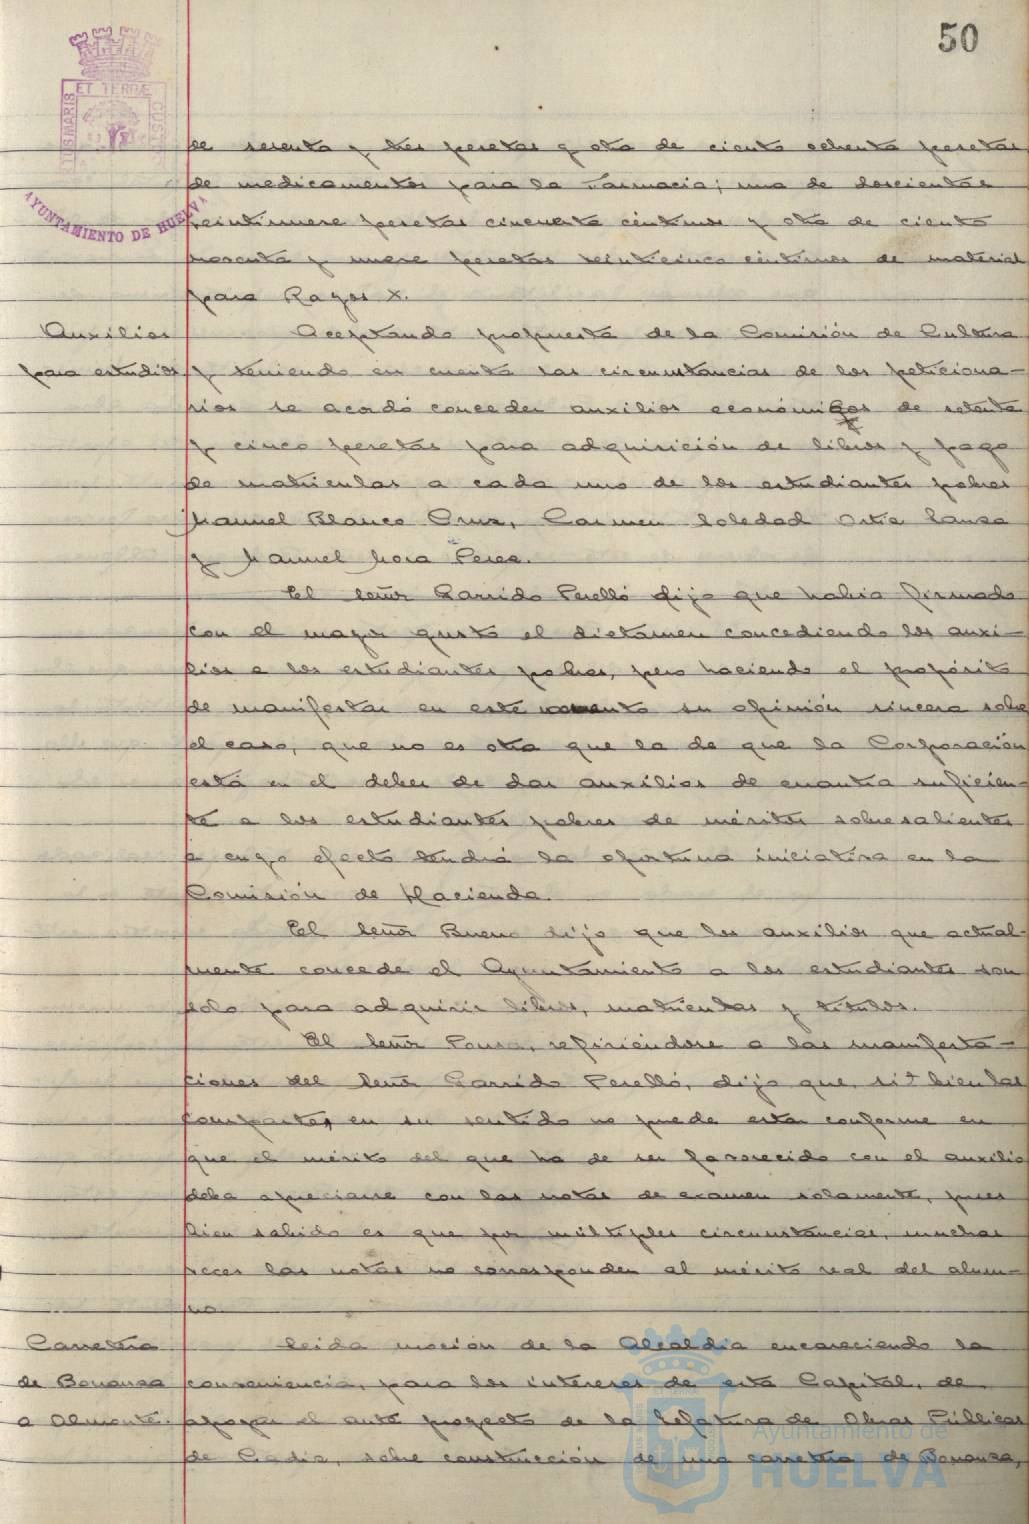 50
ET TERRÆ
AYUNTAMIENTO DE HUELVA
de sesenta y tres pesetas y otra de ciento ochenta pesetas
de medicamentos para la Farmacia; una de doscientas
veintinueve pesetas cincuenta céntimos y otra de ciento
noventa y nueve pesetas veinticinco céntimos de material
para Rayos X.
Auxilios
para estudios
Aceptando propuesta de la Comisión de Cultura
y teniendo en cuenta las circunstancias de los peticiona-
rios se acordó conceder auxilios económicos de setenta
y cinco pesetas para adquisición de libros y pago
de matrículas a cada uno de los estudiantes pobres
Manuel Blanco Cruz, Carmen Soledad Ortiz
y Manuel Mora Perea.
El Señor Garrido Perelló dijo que había firmado
con el mayor gusto el dictamen concediendo los auxi-
lios a los estudiantes pobres, pero haciendo el propósito
de manifestar en este momento su opinión sincera sobre
el caso, que no es otra que la de que la Corporación
está en el deber de dar auxilios de cuantía suficien-
te a los estudiantes pobres de méritos sobresalientes
a cuyo efecto tendrá la oportuna iniciativa en la
Comisión de Hacienda.
El Señor Bueno dijo que los auxilios que actual-
mente concede el Ayuntamiento a los estudiantes son
solo para adquirir libros, matrículas y títulos.
El Señor Ponsa, refiriéndose a las manifesta-
ciones del Señor Garrido Perelló, dijo que, si bien las
comparte, en su sentido no puede estar conforme en
que el mérito del que ha de ser favorecido con el auxilio
deba apreciarse con las notas de examen solamente, pues
bien sabido es que por múltiples circunstancias, muchas
veces las notas no corresponden al mérito real del alum-
no.
Carretera
de Bonanza
a Almonte.
Leida moción de la Alcaldía encareciendo la
conveniencia, para los intereses de esta Capital, de
apoyar el ante proyecto de la Jefatura de Obras Públicas
de Cadiz, sobre construcción de una carretera de Bonanza,
Ayuntamiento de
HUELVA